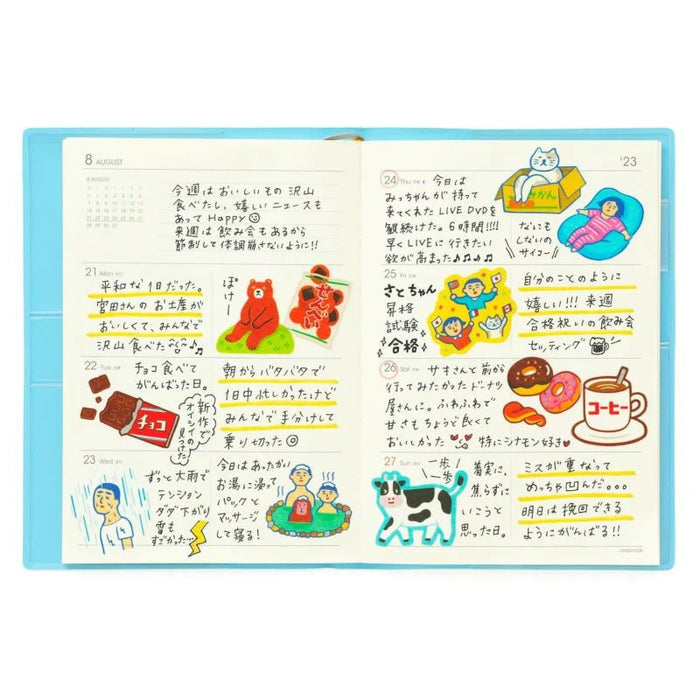 8 AUGUST
8 AUGUST
今週はおいしいもの沢山
食べたし、嬉しいニュースも
あってHappy
来週は飲み会もあるから
節制して体調崩さないように!!
21 Mon
平和な1日だった。
宮田さんのお土産が
おいしくて、みんなで
沢山食べた
ぽけー
せんべい
22 Tue
チョコ食べて
がんばった日。
チョコ
新作で
オイシイの
見つけた
朝からバタバタで
1日中忙しかったけど
みんなで手分けして
乗り切った◎
23 Wed
ずっと大雨で
テンション
ダダ下がり
雷も
すごかった…
今日はあったかい
お湯に浸って
パックと
マッサージ
して寝る!
'23
24 Thu
今日は
みっちゃんが持って
来てくれたLIVE DVDを
観続けた。6時間!!!!
早くLIVEに行きたい
欲が高まった♪♪♪♪
みかん
なにも
しないの
サイコー
25 Fri
さとちゃん
昇格
試験
合格
自分のことのように
嬉しい!!! 来週
合格祝いの飲み会
セッティング
26 Sat
サキさんと前から
行ってみたかったドーナツ
屋さんに。ふわふわで
甘さもちょうど良くて
おいしかった 特にシナモン好き
コーヒー
27 Sun
一歩
一歩
着実に、
焦らずに
いこうと
思った日。
ミスが重なって
めっちゃ凹んだ...
明日は挽回できる
ようにがんばる!!